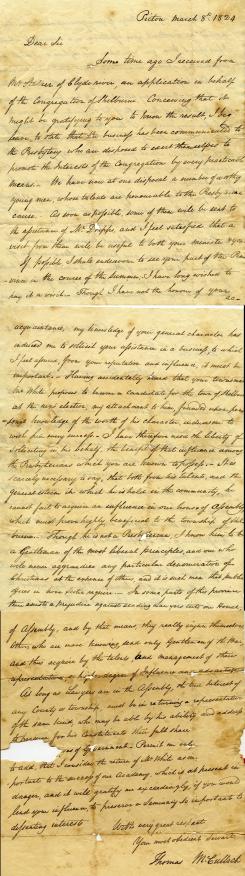 Pictou March 8th 1824
Dear Sir
Some time ago I received from
Mr of Clyde river an application in behalf
of the Congregation of Shelburne Conceiving that it
might be gratifying to you to know the result, I beg
leave to state that the business has been communicated to
the Presbytery who are disposed to exert themselves to
promote the Interests of the Congregation by every practicable
means. We have now at our disposal a number of worthy
young men, whose talents are honourable to the Presbyterian
cause. As soon as possible, some of them will be sent to
the assistance of Mr and I feel satisfied that a
visit from them will be useful to both your minister &
If possible I shall endeavour to see your part of the Pro
vince in the course of the summer. I have long wished to
pay it a visit. Though I have not the honour of your
ac-
acquaintance, my knowledge of your general character has
induced me to solicit your assistance in a business, to which
I feel assured, from your reputation and influence, it must be
important. Having accidentally heard that your townsman
Mr White proposes to become a candidate for the town of Shelburne
at the next election, my attachment to him, founded upon per
sonal knowledge of the worth of his character induces me to
wish him every success. I have therefore used the liberty of
soliciting in his behalf, the benefit of that influence among
the Presbyterians which you are known to possess. It is
scarcely necessary to say, that both from his talents, and the
general esteem in which he is held in the community, he
cannot fail to acquire an influence in our house of Assembly
which must prove highly beneficial to the township of Shel
burne. Though he is not a Presbyterian, I know him to be
a Gentleman of the most liberal principles, and one who
never aggrandizes any particular denomination of
Christians at the expense of others, and it is such men that public
In some parts of this province
there exists a prejudice against sending lawyers into our House,
of Assembly, and by that means, they really injure themselves
Others, who are more knowing send only Gentlemen of the Bar
and thus acquire by the talents and management of their
representatives, a high degree of Influence and advantage
As long as lawyers are in the Assembly, the true Interest of
any County or township, must be in returning a representative
of the same kind who may be able by his ability and address
to procure for his Constituents their full share
of Government. Permit me only
to add, that I consider the return of Mr White as im
portant to the success of our Academy, which is at present in
danger, and it will gratify me exceedingly, if you would
lend your influence, to preserve a Seminary so important to
dissenting interests. With very great respect
Your most obedient Servant
Thomas McCulloch